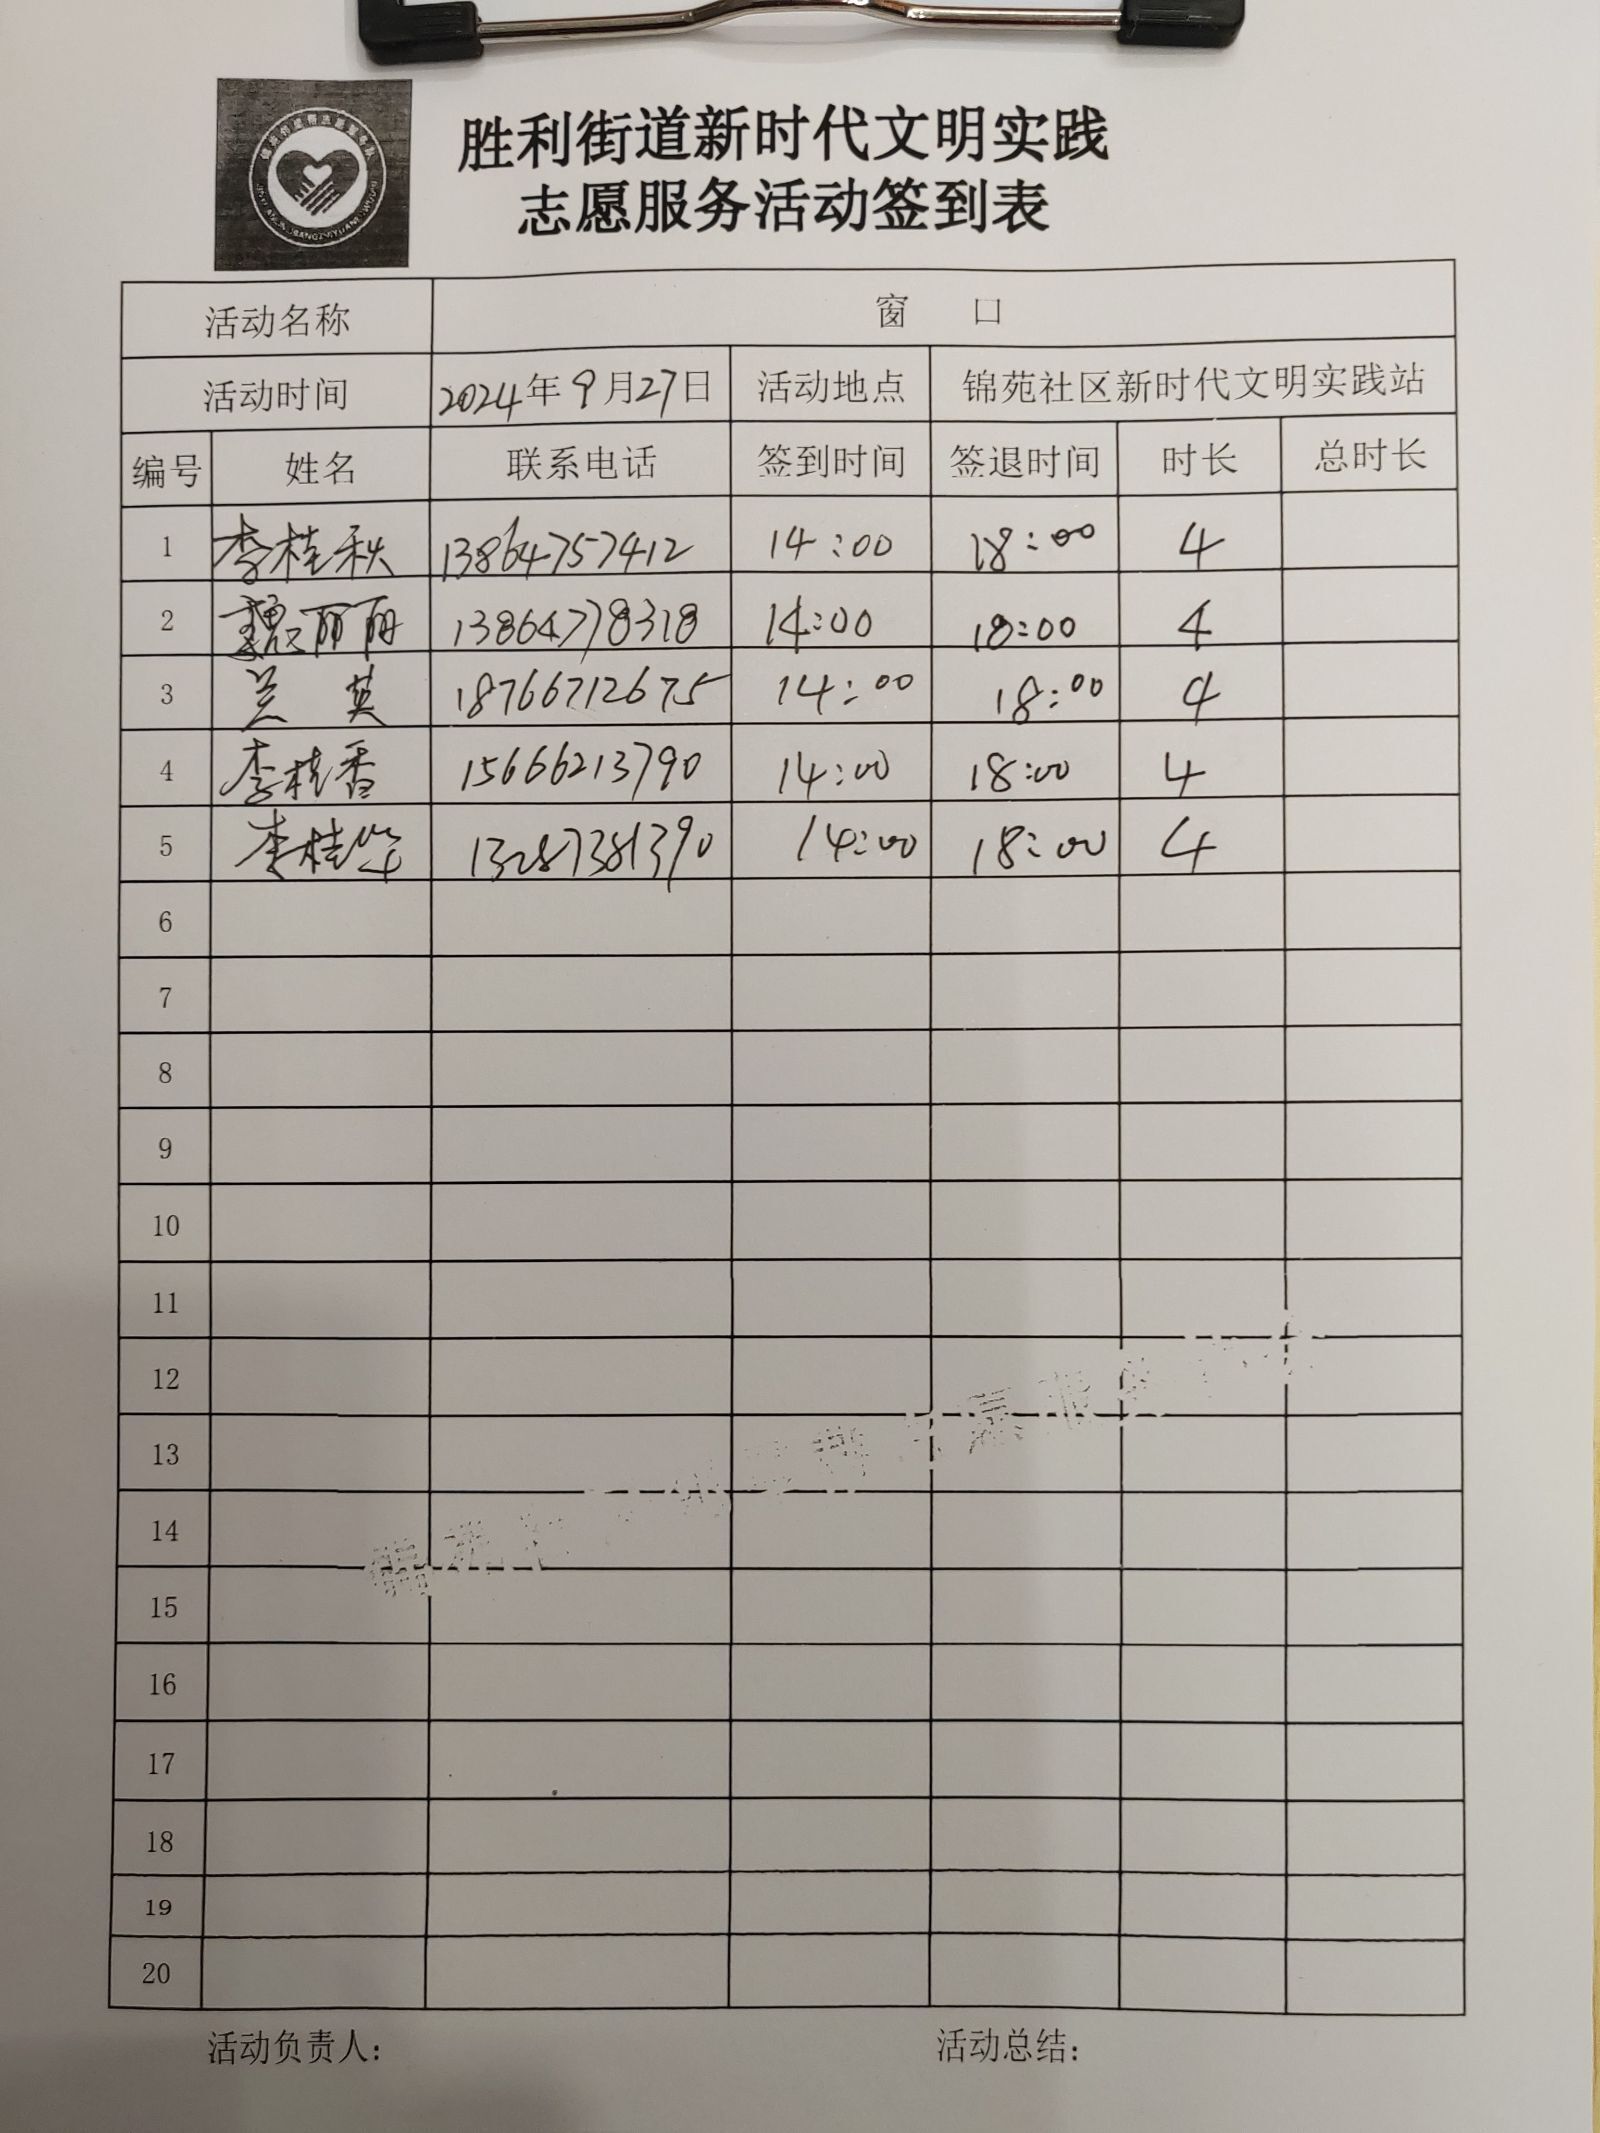 胜利街道新时代文明实践
志愿服务活动签到表
活动名称 窗 口
活动时间 2024年9月27日 活动地点 锦苑社区新时代文明实践站
编号 姓名 联系电话 签到时间 签退时间 时长 总时长
1 李桂秋 13864757412 14:00 18:00 4
2 魏丽丽 13864778318 14:00 18:00 4
3 兰英 18766712675 14:00 18:00 4
4 李桂香 15666213790 14:00 18:00 4
5 李桂华 13287381390 14:00 18:00 4
6
7
8
9
10
11
12
13
14
15
16
17
18
19
20
活动负责人: 活动总结: